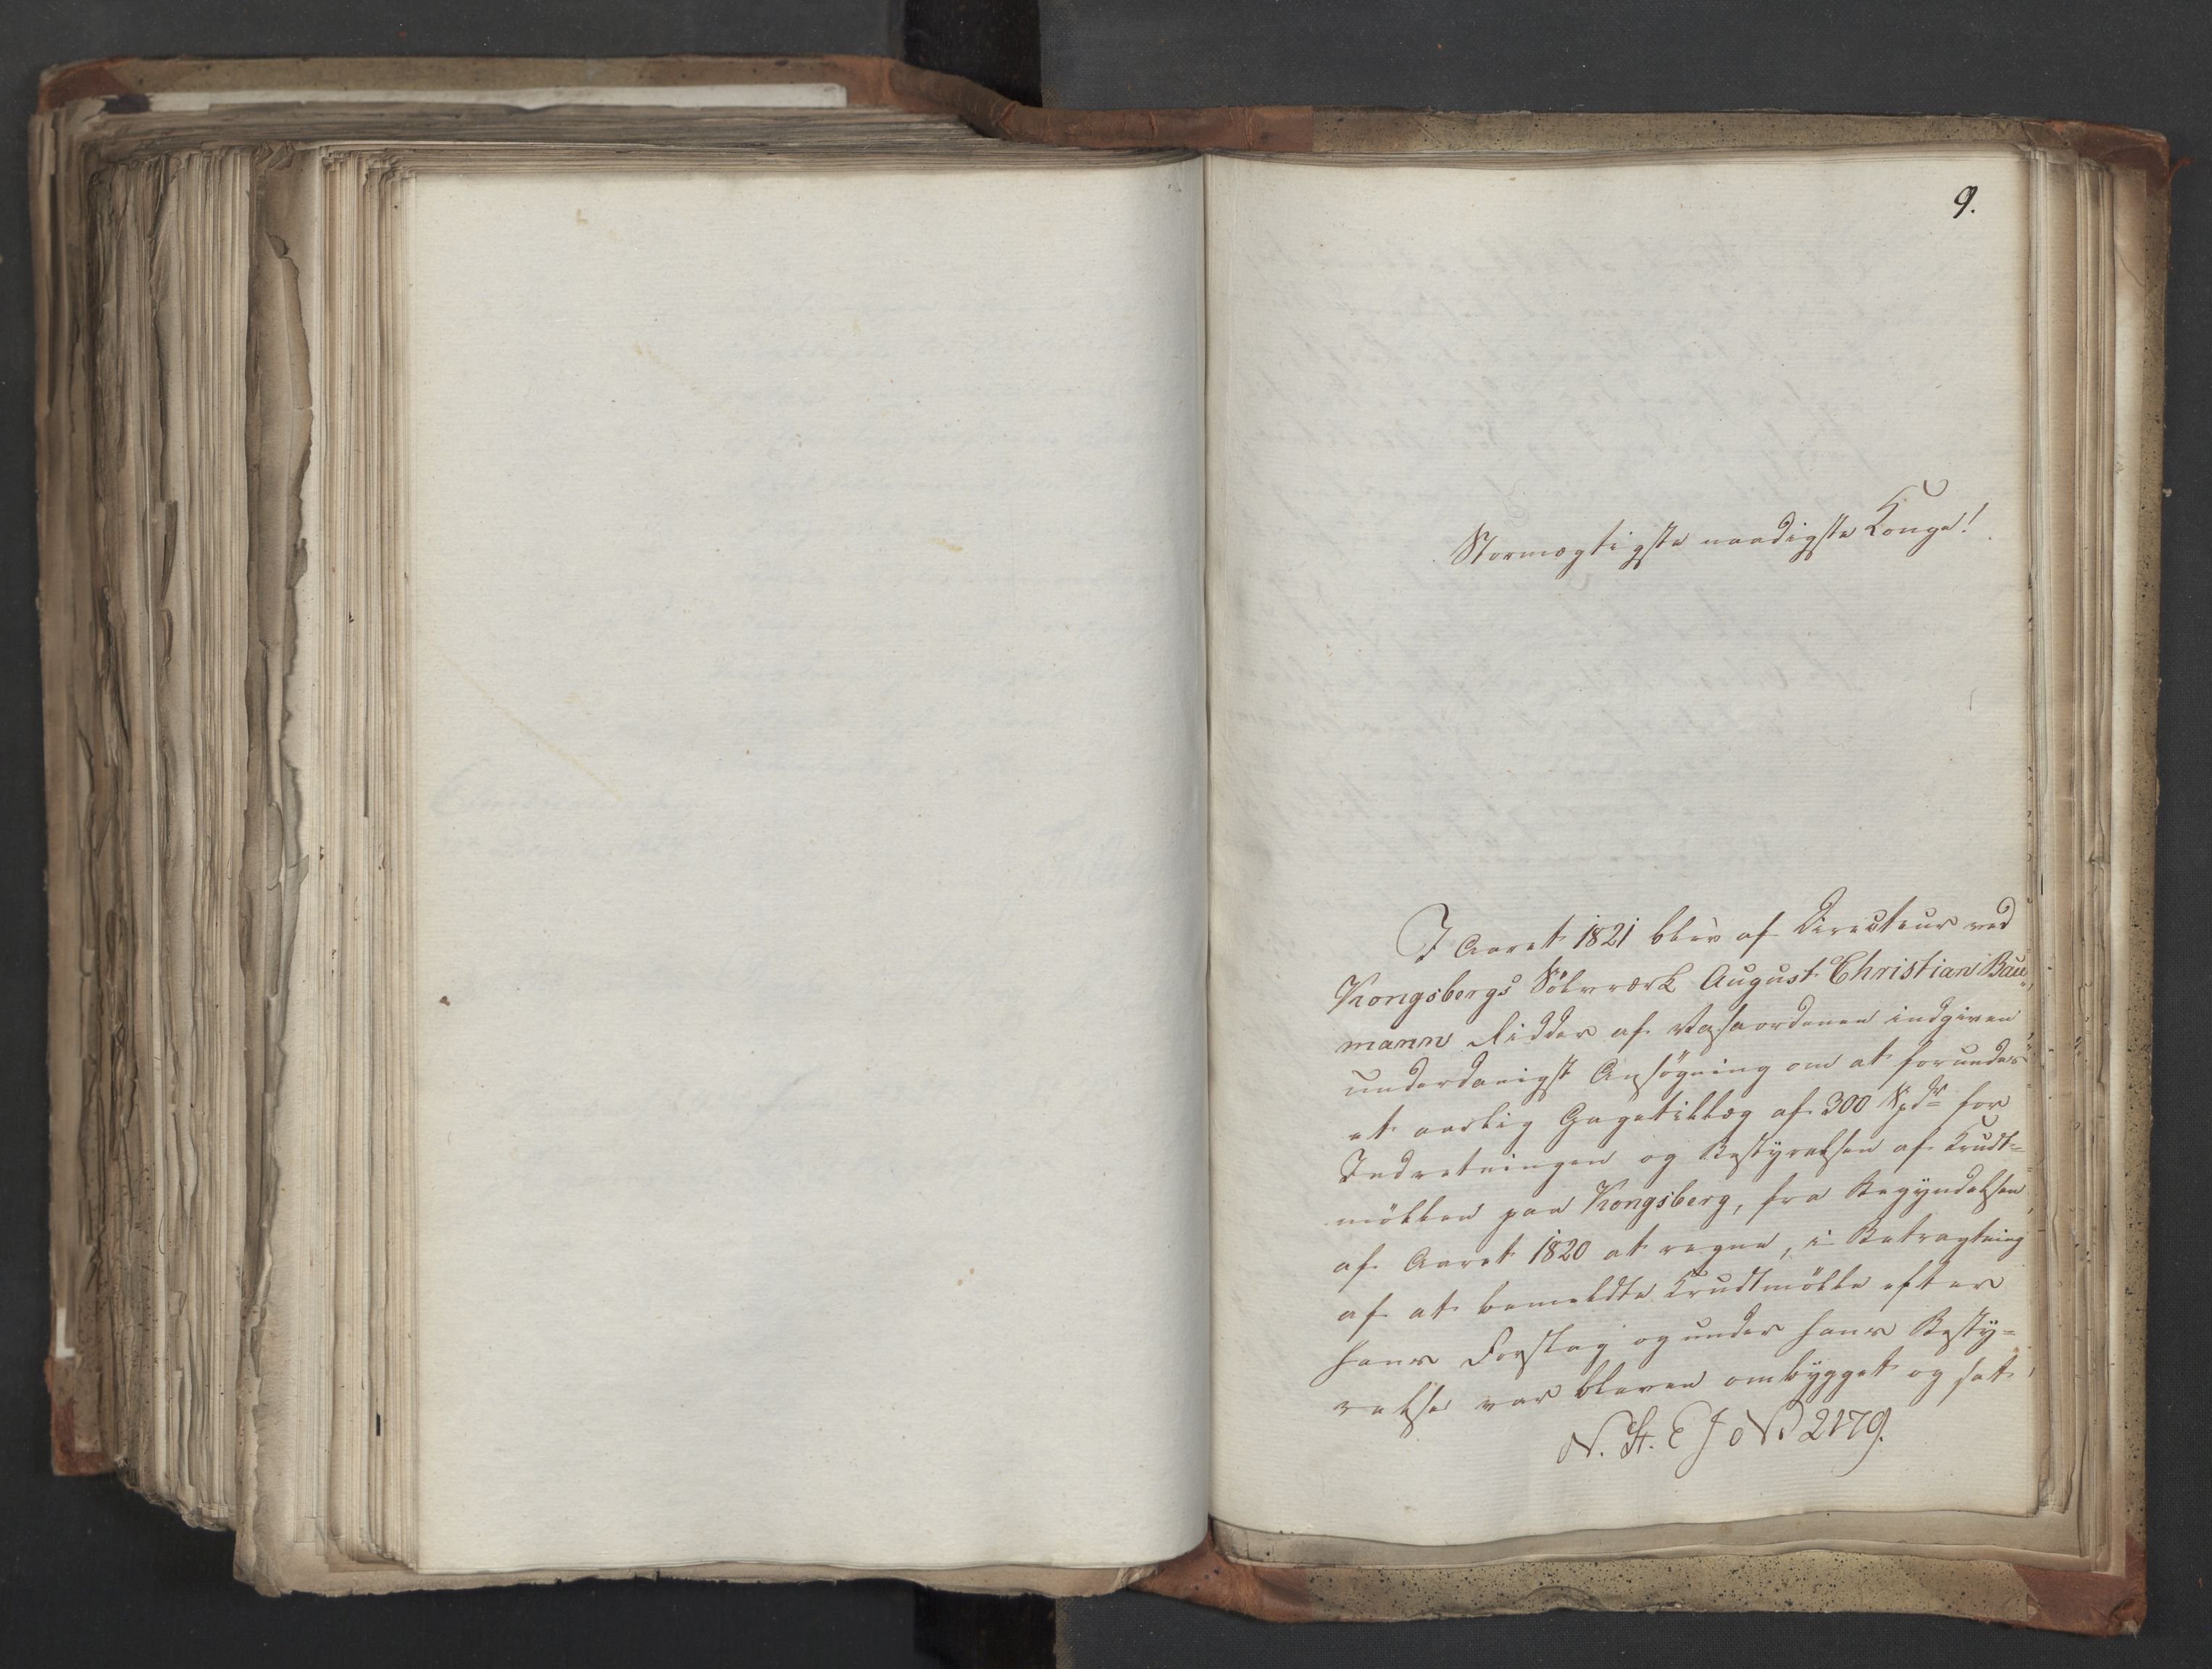 9.
Stormægtigste naadigste Konge!
I Aaret 1821 blev af Directeur ved
Kongsbergs Sölvværk August Christian Bau„
mann Ridder af Vasaordenen indgiven
underdanigst Ansögning om at forundes
et aarlig Gagetillæg af 300 Spdr for
Indretningen og Bestyrelsen af Krudt=
möllen paa Kongsberg, fra Begyndelsen
af Aaret 1820 at regne, i Betragtning
af at bemeldte Krudtmölle efter
hans Forslag og under hans Besty=
relse var bleven ombygget og sat
N. St. E J o No 2179.